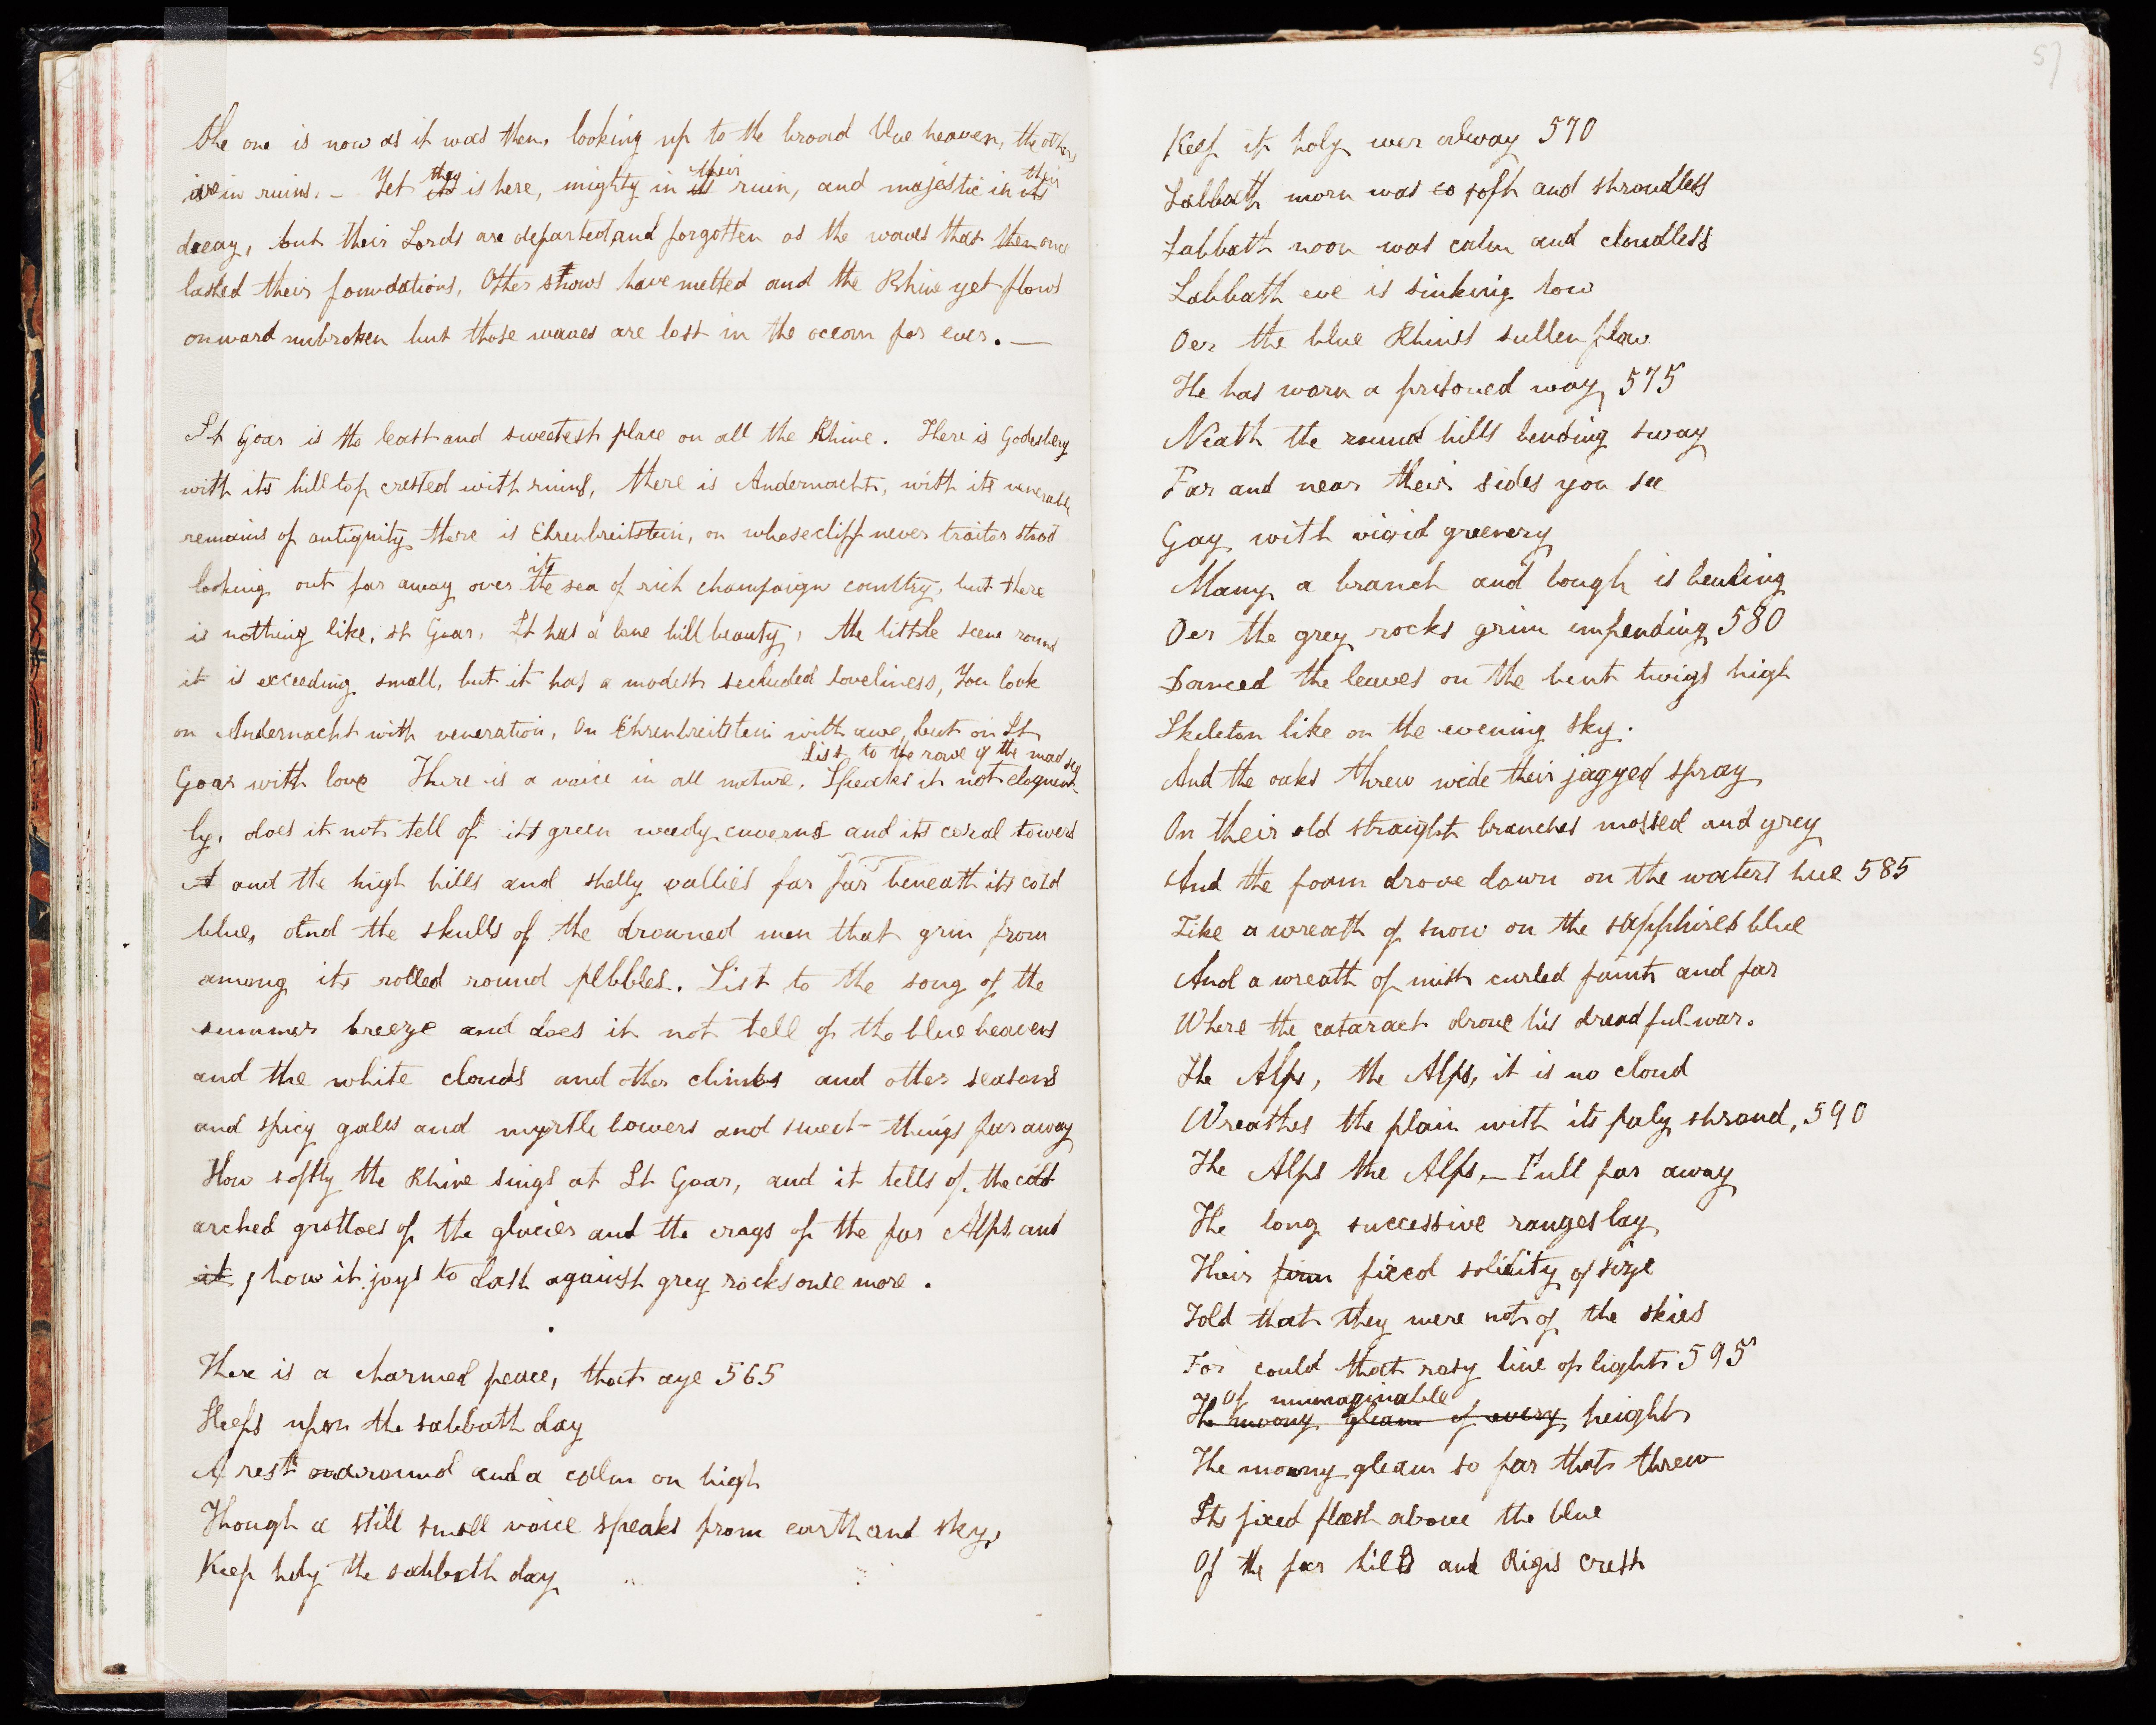 the one is now as it was then, looking up to the broad blue heaven, the others
are in ruins. – Yet they is here, mighty in their ruin, and majestic in their
decay, but their Lords are departed and forgotten as the waves that then once
lashed their foundations, Other snows have melted and the Rhine yet flows
onward unbroken but those waves are lost in the ocean for ever. —
St Goar is the least and sweetest place on all the Rhine. There is Godesberg
with its hill top crested with ruins, there is Andernacht, with its venerable
remains of antiquity there is Ehrenbreitstein, on whose cliff never traitor stood
looking out far away over its the sea of rich champaign country, but there
is nothing like, St Goar. It has a lone hill beauty, the little scene round
it is exceeding small, but it has a modest secluded loveliness, You look
on Andernacht with veneration, On Ehrenbreitstein with awe, but on St
List to the rave of the mad sea
Goar with love There is a voice in all nature. Speaks it not eloquent-
ly, does it not tell of its green weedy caverns and its coral towers
A and the high hills and shelly vallies far far beneath its cold
blue, And the skulls of the drowned men that grin from
among its rolled round pebbles. List to the song of the
summer breeze and does it not tell of the blue heavens
and the white clouds and other climes and other seasons
and spicy gales and myrtle bowers and sweet things far away
How softly the Rhine sings at St Goar, and it tells of the cold
arched grottoes of the glacier and the crags of the far Alps, and
it, how it joys to dash against grey rocks once more.
There is a charmed peace, that aye 565
Sleeps upon the sabbath day
A rest around and a calm on high
Though a still small voice speaks from earth and sky,
Keep holy the sabbath day
57
Keep it holy ever alway 570
Sabbath morn was so soft and shroudless
Sabbath noon was calm and cloudless
Sabbath eve is sinking low
Oer the blue Rhines sullen flow
He has worn a prisoned way 575
Neath the round hills bending sway
Far and near their sides you see
Gay with vivid greenery
Many a branch and bough is bending
Oer the grey rocks grim impending 580
Danced the leaves on the bent twigs high
Skeleton like on the evening sky.
And the oaks threw wide their jagged spray
On their old straight branches mossed and grey
And the foam drove down on the waters hue 585
Like a wreath of snow on the sapphires blue
And a wreath of mist curled faint and far
Where the cataract drove his dreadful war.
The Alps, the Alps, it is no cloud
Wreathes the plain with its paly shroud, 590
The Alps the Alps, – Full far away
The long successive ranges lay
Their firm fixed solidity of size
Told that they were not of the skies
For could that rosy line of light 595
Of unimaginable
The moony gleam of every height
The moony gleam so far that threw
Its fixed flash above the blue
Of the far hills and Rigis crest